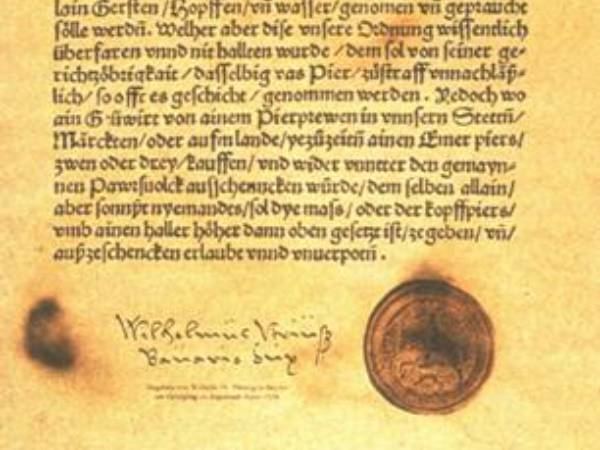 lain Gersten /Hopffen/vn̄ wasser/genomen vn̄ gepraucht
sölle werdn̄. Welher aber dise vnsere Ordnung wissentlich
überfaren vnnd nit hallten wurde /dem sol von seiner ge-
richtzöbrigkait/dasselbig vas Pier/zůstraff vnnachläß-
lich/so offt es geschicht/genommen werden. Yedoch wo
ain Güwirt von ainem Pierprewen in vnnsern Stettn̄/
Märckten/oder aufm lande/yezůzeitn̄ ainen Emer piers/
zwen oder drey/kauffen/vnd wider vnntter den gemayn-
nen Pawrsuolck ausschenncken würde/dem selben allain/
aber sonnst nyemandes/sol dye mass/oder der kopffpiers/
vmb ainen haller höher dann oben gesetzt ist/ze geben/vn̄/
außzeschencken erlaubt vnnd vnuerpotn̄.
Wilhelmus